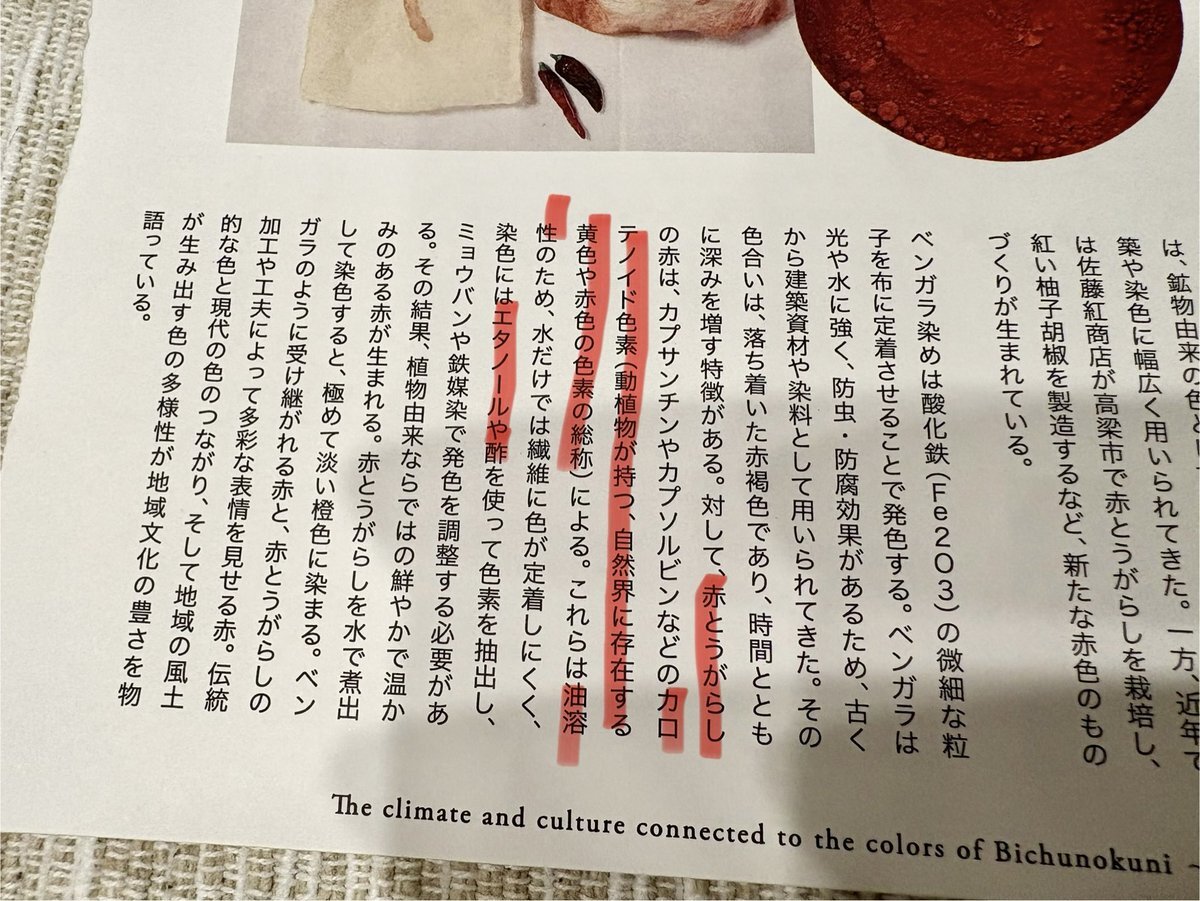 は、鉱物由来の色と
築や染色に幅広く用いられてきた。一方、近年で
は佐藤紅商店が高梁市で赤とうがらしを栽培し、
紅い柚子胡椒を製造するなど、新たな赤色のもの
づくりが生まれている。
ベンガラ染めは酸化鉄（Fe2O3）の微細な粒
子を布に定着させることで発色する。ベンガラは
光や水に強く、防虫・防腐効果があるため、古く
から建築資材や染料として用いられてきた。その
色合いは、落ち着いた赤褐色であり、時間ととも
に深みを増す特徴がある。対して、赤とうがらし
の赤は、カプサンチンやカプソルビンなどのカロ
テノイド色素（動植物が持つ、自然界に存在する
黄色や赤色の色素の総称）による。これらは油溶
性のため、水だけでは繊維に色が定着しにくく、
染色にはエタノールや酢を使って色素を抽出し、
ミョウバンや鉄媒染で発色を調整する必要があ
る。その結果、植物由来ならではの鮮やかで温か
みのある赤が生まれる。赤とうがらしを水で煮出
して染色すると、極めて淡い橙色に染まる。ベン
ガラのように受け継がれる赤と、赤とうがらしの
加工や工夫によって多彩な表情を見せる赤。伝統
的な色と現代の色のつながり、そして地域の風土
が生み出す色の多様性が地域文化の豊さを物
語っている。
The climate and culture connected to the colors of Bichunokuni